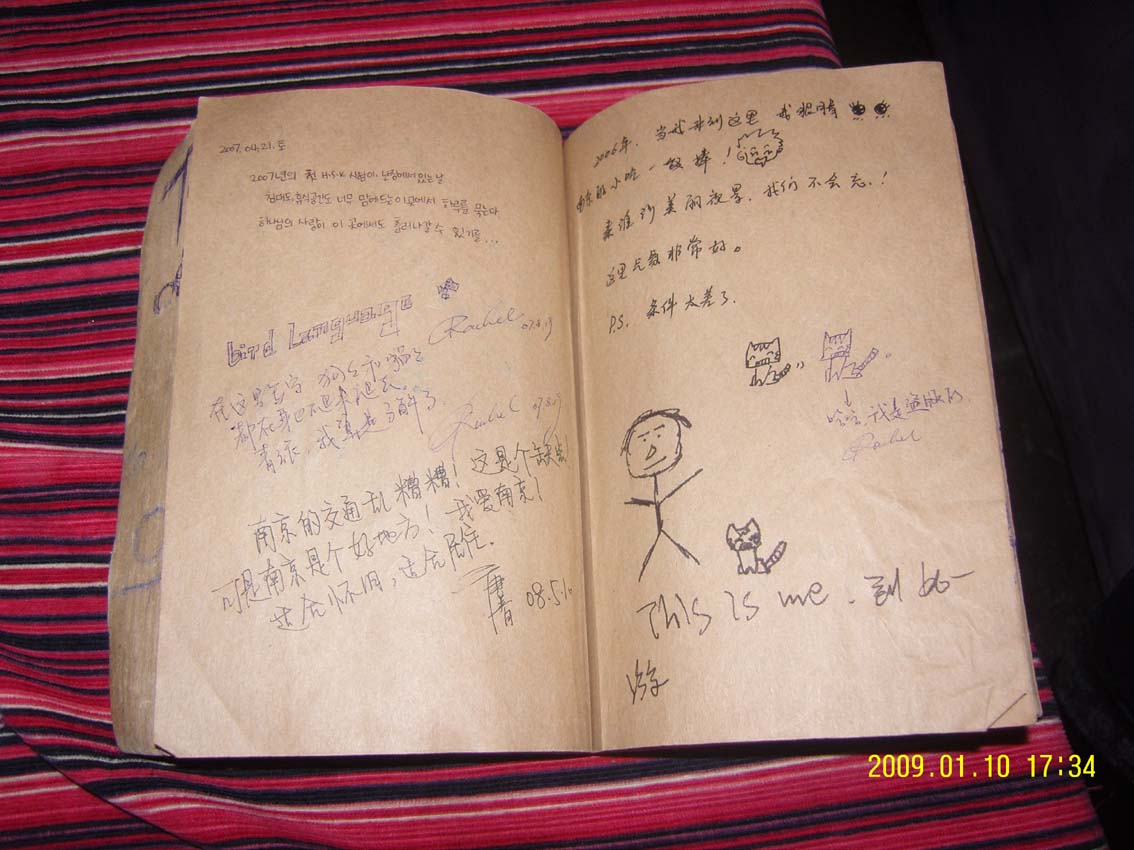 2007.04.21.토
2007년의 첫 H.S.K 시험이 난징에서 있는 날
침대도, 휴식공간도 너무 맘에 드는 이곳에서 하루를 묵는다
하나님의 사랑이 이 곳에서도 흘러나갈 수 있기를...
bird Language
Rachel 07.8.19
在这里写字 狗么和猫么
都在身边不跑来跑去
Rachel 07.8.19
南京的交通乱糟糟！这是个缺点
可是南京是个好地方！我爱南京！
适合怀旧，适合居住.
08.5.1
2006年. 当我来到这里 我很
南京的小吃一级棒！
秦淮河美丽夜景，我们不会忘！
这里气氛非常好。
P.S. 条件太差了.
哈哈，我是盗版的
Rachel
This is me. 到此一
游
2009.01.10 17:34